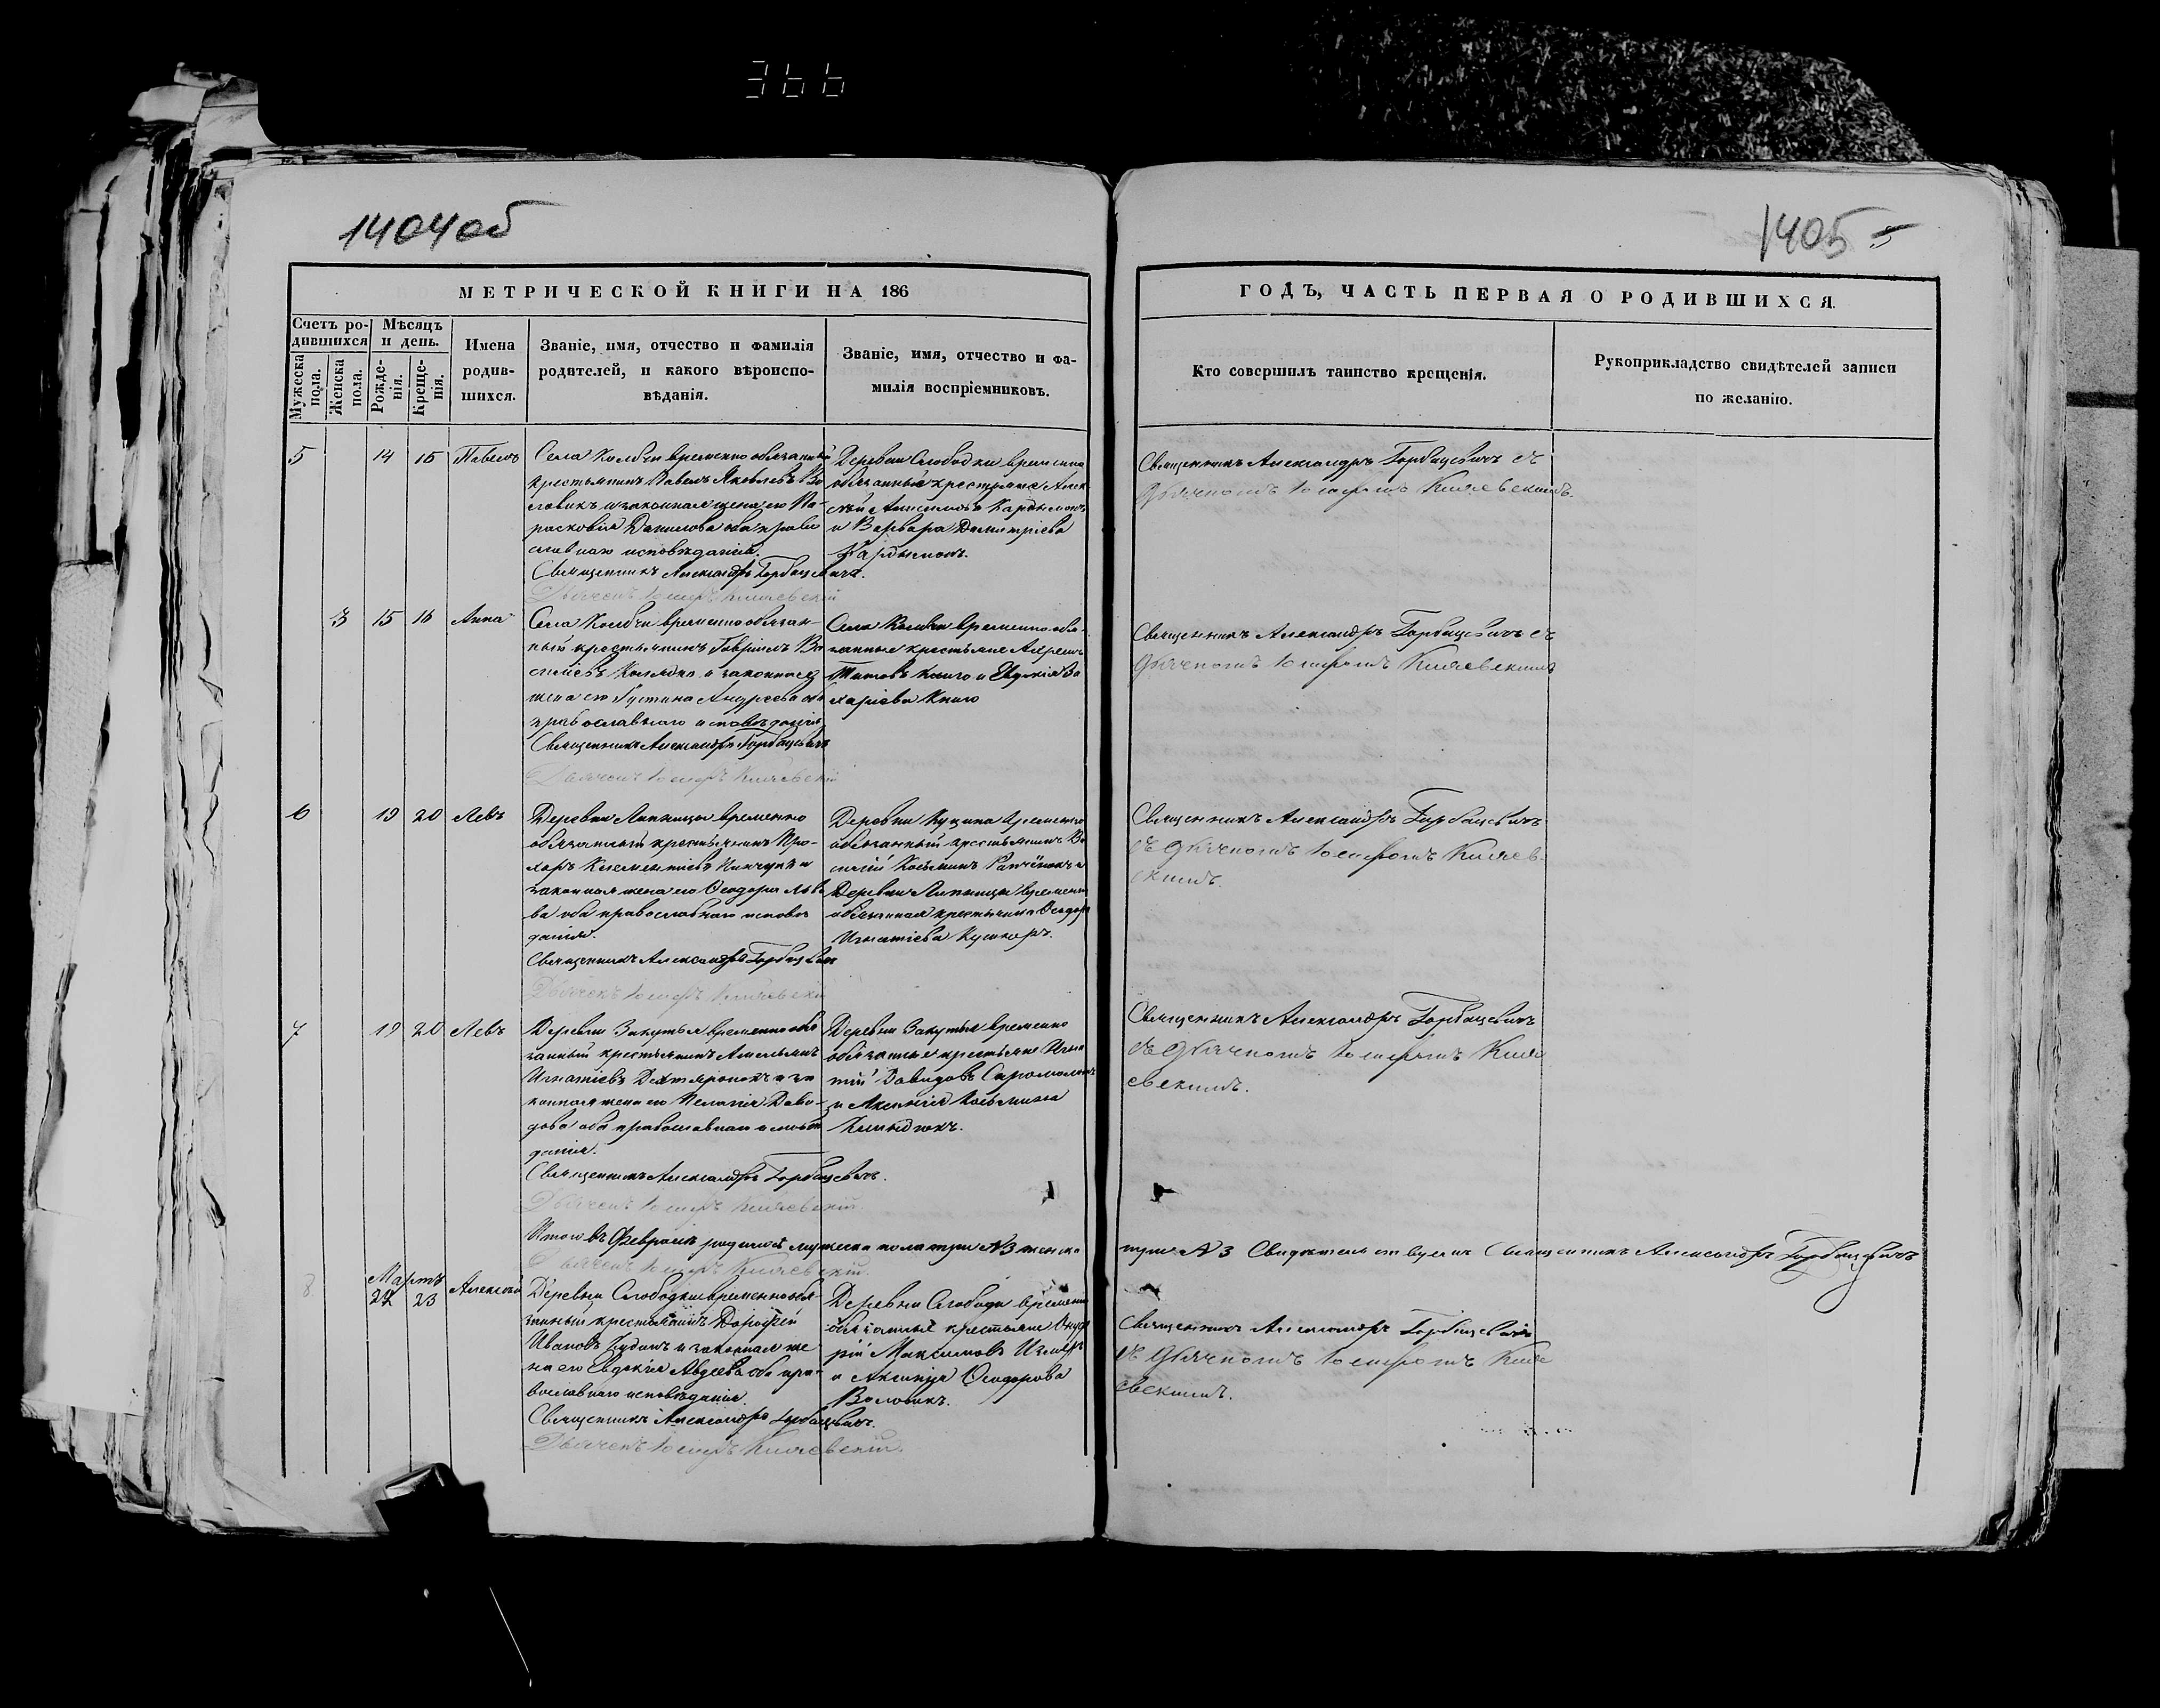 366
1404об
1405
5
МЕТРИЧЕСКОЙ КНИГИ НА 186
ГОДЪ, ЧАСТЬ ПЕРВАЯ О РОДИВШИХСЯ.
Счетъ ро-
дившихся
Мужеска
пола.
Женска
пола.
Мѣсяцъ
и день.
Рожде-
нія.
Креще-
нія.
Имена
родив-
шихся.
Званіе, имя, отчество и фамилія
родителей, и какого вѣроиспо-
вѣданія.
Званіе, имя, отчество и фа-
милія воспріемниковъ.
Кто совершилъ таинство крещенія.
Рукоприкладство свидѣтелей записи
по желанію.
5 14 15 Павелъ
Села Колбчи временно обязанный
крестьянинъ Павелъ Яковлевъ Во
ловикъ и законная жена его Па-
расковія Данилова оба право
славнаго исповѣданія.
Священникъ Александръ Горбацевичъ.
Дьячекъ Іосифъ Княжевскій
Деревни Слободки временно
обязанные крестьяне Алек
сѣй Анисимовъ
и Варвара Димитріева
Священникъ Александръ Горбацевичъ съ
Дьячкомъ Іосифомъ
3 15 16 Анна
Села Колбчи временно обязан-
ный крестьянинъ Гавріилъ Ва
силіевъ и законная
жена его Густина Андреева оба
православнаго исповѣданія
Священникъ Александръ Горбацевичъ
Дьячекъ Іосифъ
Села Колбчи временно обя-
занные крестьяне
Титовъ Книго и Евдокія За
харіева Книго
Священникъ Александръ Горбацевичъ съ
Дьячкомъ Іосифомъ
6 19 20 Левъ
Деревни временно
обязанный крестьянинъ Про-
хоръ Климентіевъ и
законная жена его Ѳеодора Льво
ва оба православнаго исповѣ
данія.
Священникъ Александръ Горбацевичъ
Дьячекъ Іосифъ
Деревни временно
обязанный крестьянинъ Ва
силій Косьминъ и
Деревни временно
обязанная крестьянка Ѳеодора
Игнатіева
Священникъ Александръ Горбацевичъ
съ Дьячкомъ Іосифомъ
7 19 20 Левъ
Деревни Закутья временно обя
занный крестьянинъ Амельянъ
Игнатіевъ и за
конная жена его Пелагія Дави-
дова оба православнаго исповѣ
данія.
Священникъ Александръ Горбацевичъ.
Дьячекъ Іосифъ
Деревни Закутья временно
обязанные крестьяне Игна
тій Давидовъ
и Аксинія Косьмина
Священникъ Александръ Горбацевичъ
съ Дьячкомъ Іосифомъ
Итого въ Февралѣ родилось мужеска пола три №3 женска
три №3 Священникъ Александръ Горбацевичъ
Дьячекъ Іосифъ
Мартъ
8 22 23 Алексѣй
Деревни Слободки временно обя
занный крестьянинъ Дорофей
Ивановъ и законная же
на его Евдокія Авдеева оба пра-
вославнаго исповѣданія.
Священникъ Александръ Горбацевичъ.
Дьячекъ Іосифъ
Деревни Слободки временно
обязанные крестьяне Онуф
рій Максимовъ
и Аксинія Ѳеодорова
Воловикъ.
Священникъ Александръ Горбацевичъ
съ Дьячкомъ Іосифомъ